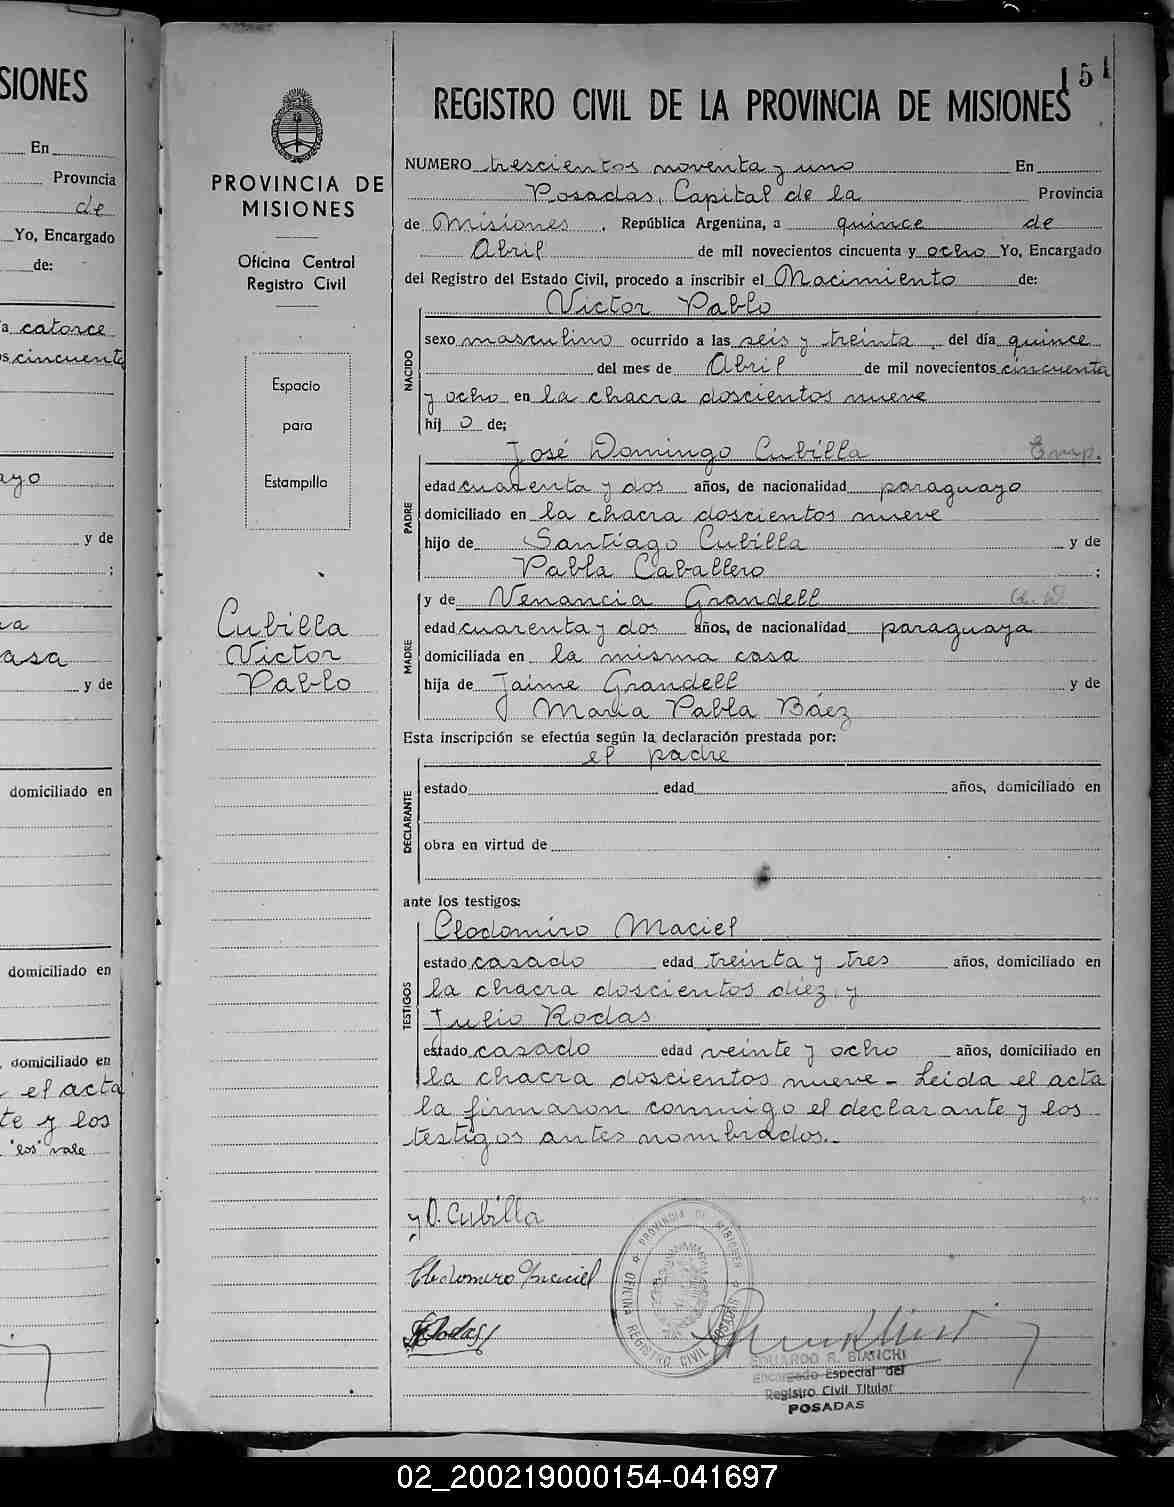 SIONES
En
Provincia
de
Yo, Encargado
de:
a catorce
s cincuenta
ayo
y de
;
asa
y de
domiciliado en
domiciliado en
domiciliado en
el acta
te y los
"los" vale
PROVINCIA DE
MISIONES
Oficina Central
Registro Civil
Espacio
para
Estampilla
Cubilla
Victor
Pablo
151
REGISTRO CIVIL DE LA PROVINCIA DE MISIONES
NUMERO trescientos noventa y uno En
Posadas, Capital de la Provincia
de Misiones, República Argentina, a quince de
Abril de mil novecientos cincuenta y ocho Yo, Encargado
del Registro del Estado Civil, procedo a inscribir el Nacimiento de:
NACIDO
Victor Pablo
sexo masculino ocurrido a las seis y treinta del día quince
del mes de Abril de mil novecientos cincuenta
y ocho en la chacra doscientos nueve
hij o de;
PADRE
José Domingo Cubilla Emp.
edad cuarenta y dos años, de nacionalidad paraguayo
domiciliado en la chacra doscientos nueve
hijo de Santiago Cubilla y de
Pabla Caballero ;
MADRE
y de Venancia Grandell
edad cuarenta y dos años, de nacionalidad paraguaya
domiciliada en la misma casa
hija de Jaime Grandell y de
María Pabla Báez
Esta inscripción se efectúa según la declaración prestada por:
el padre
DECLARANTE
estado edad años, domiciliado en
obra en virtud de
ante los testigos:
TESTIGOS
Clodomiro Maciel
estado casado edad treinta y tres años, domiciliado en
la chacra doscientos diez, y
Julio Rodas
estado casado edad veinte y ocho años, domiciliado en
la chacra doscientos nueve - Leida el acta
la firmaron conmigo el declarante y los
testigos antes nombrados.-
y D. Cubilla
Clodomiro Maciel
Rodas
PROVINCIA DE MISIONES
OFICINA REGISTRO CIVIL
EDUARDO R. BIANCHI
Encargado Especial del
Registro Civil Titular
POSADAS
02_200219000154-041697